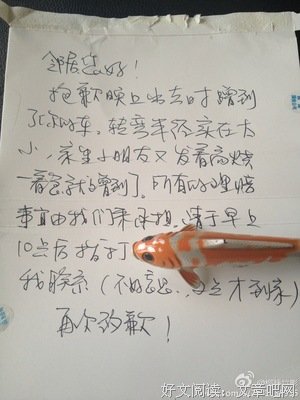 邻居您好！
抱歉晚上出去时蹭到
了您的车，转弯半径实在太
小，家里小朋友又发着高烧
一着急就蹭到了。所有的理赔
事宜由我们来承担，请于早上
10点后拨打
我联系（不好意思，点才到家）
再次致歉！
好文阅读：文章吧网